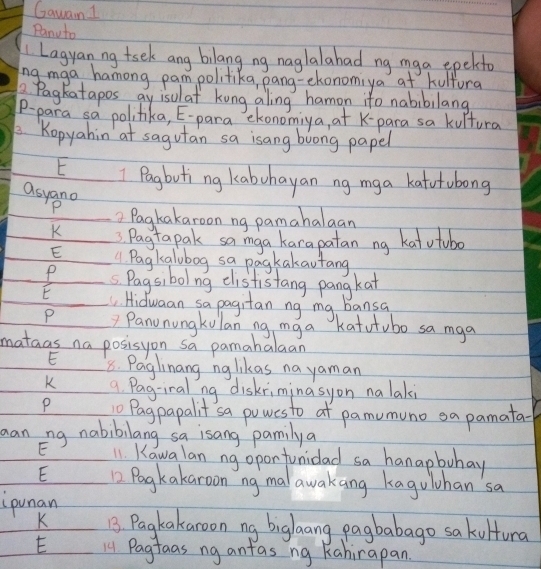 Gawain 1
Panuto
1. Lagyan ng tsek ang bilang ng naglalahad ng mga epekto
ng mga hamong pampolitika, pang-ekonomiya at kultura
2. Pagkatapos ay isulat kung aling hamon ito nabibilang
P-para sa politika, E-para ekonomiya, at K-para sa kultura
3. Kopyahin at sagutan sa isang buong papel
E 1. Pagbuti ng kabuhayan ng mga katutubong
asyano
P 2. Pagkakaroon ng pamahalaan
K 3. Pagtapak sa mga karapatan ng katutubo
E 4. Pagkalubog sa pagkakautang
P 5. Pagsibol ng elististang pangkat
E 6. Hidwaan sa pagitan ng mg bansa
P 7. Panunungkulan ng mga katutubo sa mga
mataas na posisyon sa pamahalaan
E 8. Paglinang ng likas na yaman
K 9. Pag-iral ng diskriminasyon na laki
P 10 Pagpapalit sa puwesto at pamumuno sa pamata-
aan ng nabibilang sa isang pamilya
E 11. Kawalan ng oportunidad sa hanapbuhay
E 12 Pagkakaroon ng malawakang kaguluhan sa
ipunan
K 13. Pagkakaroon ng biglaang pagbabago sa kultura
E 14 Pagtaas ng antas ng kahirapan.